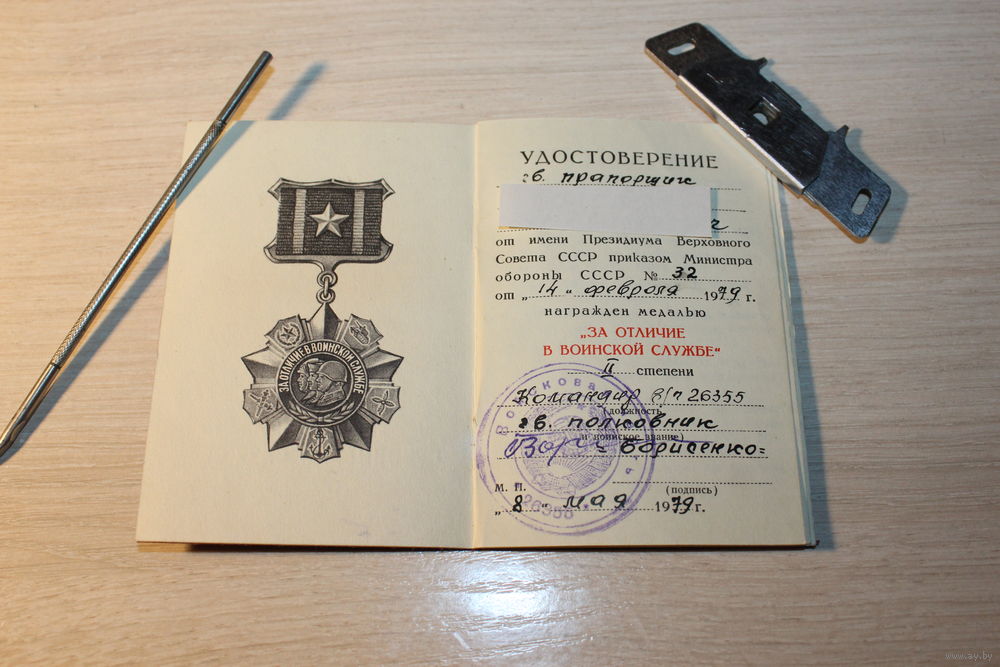 ЗА ОТЛИЧИЕ В ВОИНСКОЙ СЛУЖБЕ
УДОСТОВЕРЕНИЕ
гв. прапорщик
от имени Президиума Верховного
Совета СССР приказом Министра
обороны СССР № 32
от „14" февраля 1979 г.
награжден медалью
„ЗА ОТЛИЧИЕ
В ВОИНСКОЙ СЛУЖБЕ"
II степени
Командир в/п 26355
(должность
гв. полковник
и воинское звание)
Борисенко
(подпись)
М. П.
„8" мая 1979 г.
www.ay.by